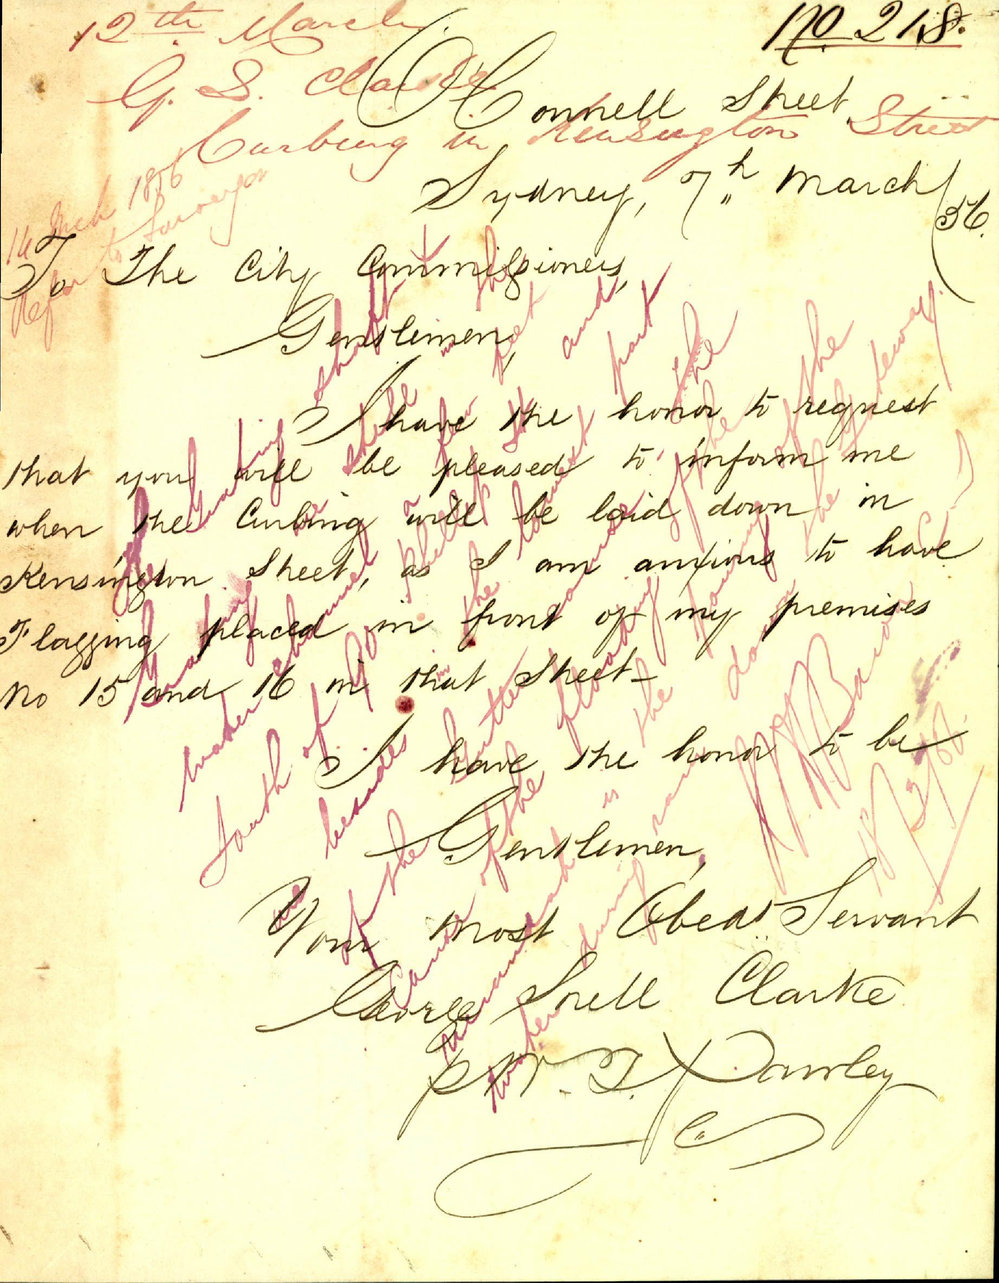 No. 218.
12th March
G. S. Clarke
Curbing in Kensington Street
14 Mch 1856
Refer to Surveyor
O'Connell Street,
Sydney, 7th March/56.
To The City Commissioners,
Gentlemen,
I have the honor to request
that you will be pleased to inform me
when the Curbing will be laid down in
Kensington Street, as I am anxious to have
Flagging placed in front of my premises
No 15 and 16 in that Street —
I have the honor to be
Gentlemen,
Your most Obedt. Servant
George Sorell Clarke
p W. T. Pawley
The grating
in the
water channel
South of
besides in the lowest part
of the gutter
cause of the flooding of the
is the
water during rain down the